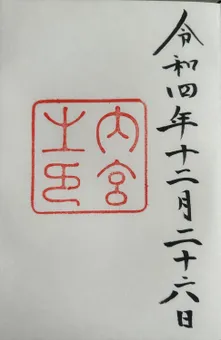 令和四年十二月二十六日
内宮
之印